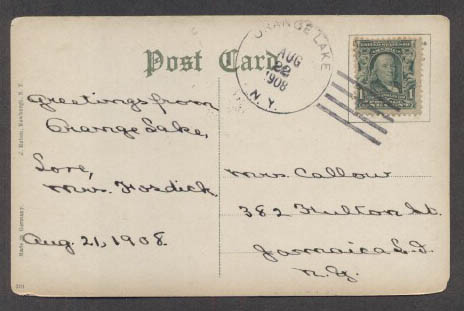 Post Card
ORANGE LAKE
AUG
22
1908
N.Y.
1
Greetings from
Orange Lake,
Love,
Mrs. Fosdick
Aug. 21, 1908.
Mrs. Callow
382 Fulton St.
Jamaica L.I.
N.Y.
Made in Germany.